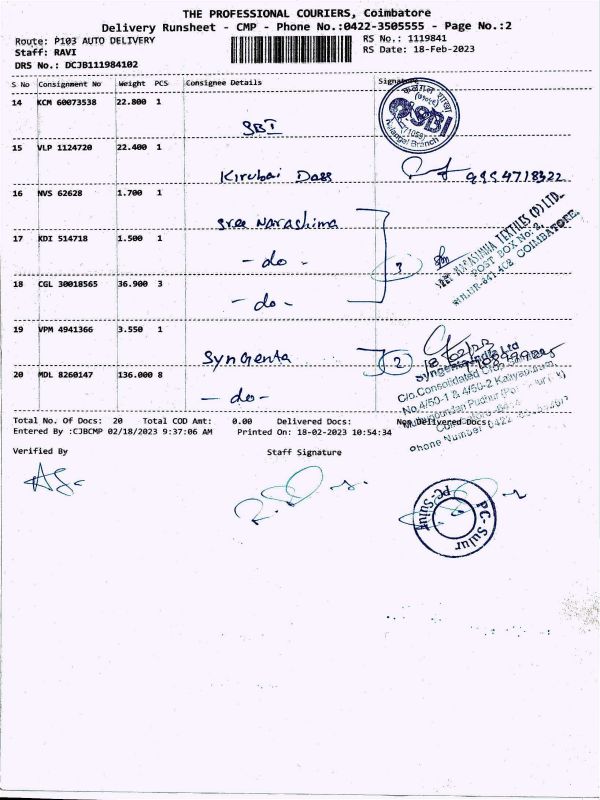 THE PROFESSIONAL COURIERS, Coimbatore
Delivery Runsheet - CMP - Phone No.:0422-3505555 - Page No.:2
Route: P103 AUTO DELIVERY
RS No.: 1119841
Staff: RAVI
RS Date: 18-Feb-2023
DRS No.: DCJB111984102
S No Consignment No Weight PCS Consignee Details Signature
14 KCM 60073538 22.800 1
SBI
SBI
Branch
15 VLP 1124720 22.400 1
Kirubai Dass 9994718322
16 NVS 62628 1.700 1
Sree Narashima
17 KDI 514718 1.500 1
- do -
3
NARASIMHA TEXTILES (P) LTD.
POST BOX No: 2,
COIMBATORE.
18 CGL 30018565 36.900 3
- do -
19 VPM 4941366 3.550 1
Syngenta
2
18/02/23
Syngenta India Ltd
20 MDL 8260147 136.000 8
- do -
C/o.Consolidated
No.4/50-1 & 4/50-2 Kaliyapuram
Phone Number
Total No. Of Docs: 20 Total COD Amt: 0.00 Delivered Docs: Non Delivered Docs:
Entered By :CJBCMP 02/18/2023 9:37:06 AM Printed On: 18-02-2023 10:54:34
Verified By Staff Signature
PC-Sulur
PC-Sulur